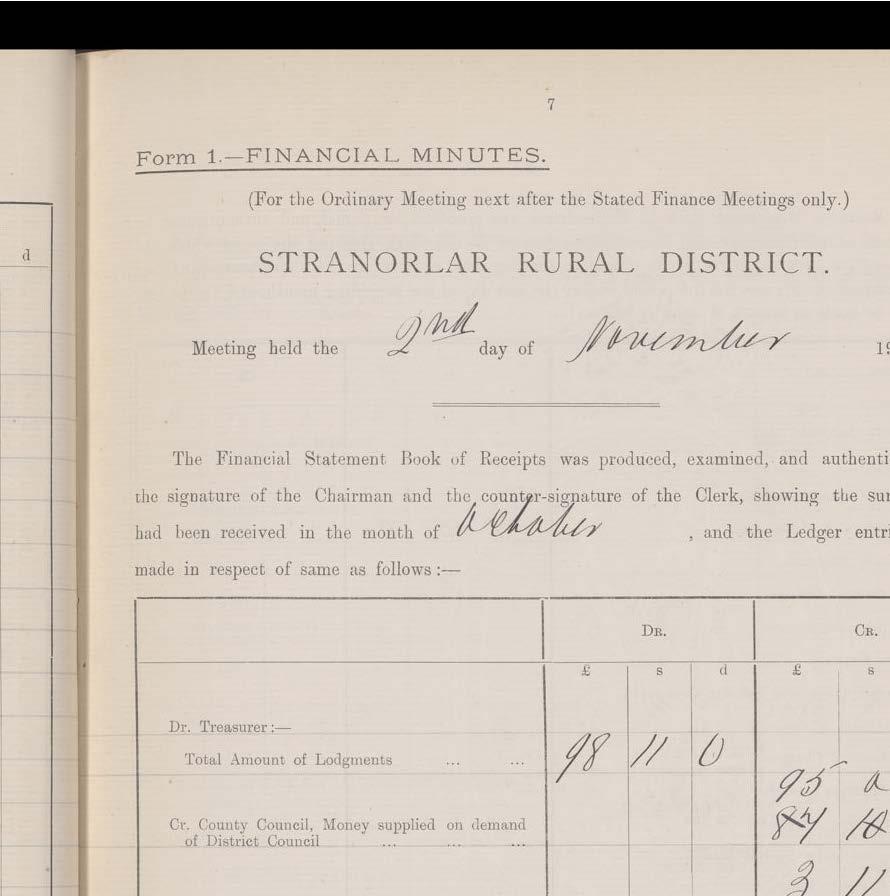 7
Form 1.—FINANCIAL MINUTES.
(For the Ordinary Meeting next after the Stated Finance Meetings only.)
d
STRANORLAR RURAL DISTRICT.
Meeting held the 2nd day of November 19
The Financial Statement Book of Receipts was produced, examined, and authenti
the signature of the Chairman and the counter-signature of the Clerk, showing the su
had been received in the month of October , and the Ledger entri
made in respect of same as follows :—
DR. CR.
£ s d £ s
Dr. Treasurer :—
Total Amount of Lodgments ... ... 98 11 0
95 0
Cr. County Council, Money supplied on demand
of District Council ... ... ...
3 11